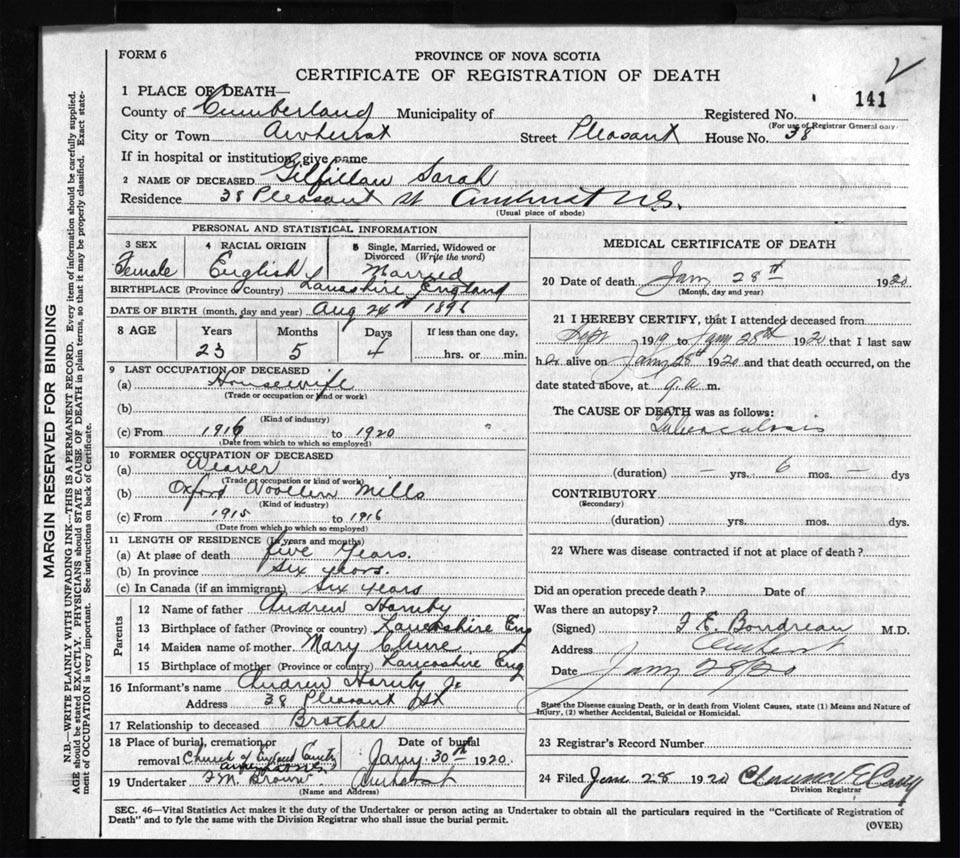 FORM 6
PROVINCE OF NOVA SCOTIA
CERTIFICATE OF REGISTRATION OF DEATH
141
1 PLACE OF DEATH—
County of Cumberland Municipality of Registered No.
(For use of Registrar General only.)
City or Town Amherst Street Pleasant House No. 38
If in hospital or institution, give name
2 NAME OF DECEASED Gilfillan Sarah
Residence 38 Pleasant St Amherst N.S.
(Usual place of abode)
PERSONAL AND STATISTICAL INFORMATION
3 SEX 4 RACIAL ORIGIN 5 Single, Married, Widowed or Divorced (Write the word)
Female English Married
BIRTHPLACE (Province or Country) Lancashire England
DATE OF BIRTH (month, day and year) Aug 24th
8 AGE Years Months Days If less than one day,
23 5 4 hrs. or min.
9 LAST OCCUPATION OF DECEASED
(a) Housewife
(Trade or occupation or kind or work)
(b)
(Kind of industry)
(c) From 1916 to 1920
(Date from which to which so employed)
10 FORMER OCCUPATION OF DECEASED
(a) Weaver
(Trade or occupation or kind of work)
(b) Oxford Woollen Mills
(Kind of industry)
(c) From 1915 to 1916
(Date from which to which so employed)
11 LENGTH OF RESIDENCE (In years and months)
(a) At place of death five years.
(b) In province Six years.
(c) In Canada (if an immigrant) Six years
Parents
12 Name of father Andrew Hornby
13 Birthplace of father (Province or country) Lancashire Eng
14 Maiden name of mother. Mary
15 Birthplace of mother (Province or country) Lancashire Eng
16 Informant's name Andrew Hornby Jr
Address 38 Pleasant St
17 Relationship to deceased Brother
18 Place of burial, cremation or removal Church of England Date of burial Jany. 30th 1920
19 Undertaker F.M. Brown Amherst
(Name and Address)
MEDICAL CERTIFICATE OF DEATH
20 Date of death Jany 28th 1920
(Month, day and year)
21 I HEREBY CERTIFY, that I attended deceased from
Sept 1919 to Jany 28th 1920 that I last saw
her alive on Jany 28th 1920 and that death occurred, on the
date stated above, at 9 a. m.
The CAUSE OF DEATH was as follows:
Tuberculosis
(duration) — yrs. 6 mos. — dys
CONTRIBUTORY
(Secondary)
(duration) yrs. mos. dys.
22 Where was disease contracted if not at place of death?
Did an operation precede death? Date of
Was there an autopsy?
(Signed) F. E. Boudreau M.D.
Address Amherst
Date Jany 28/20
State the Disease causing Death, or in death from Violent Causes, state (1) Means and Nature of
Injury, (2) whether Accidental, Suicidal or Homicidal.
23 Registrar's Record Number
24 Filed Jan 28 1920 Clarence E
Division Registrar
SEC. 46—Vital Statistics Act makes it the duty of the Undertaker or person acting as Undertaker to obtain all the particulars required in the "Certificate of Registration of
Death" and to fyle the same with the Division Registrar who shall issue the burial permit.
(OVER)
MARGIN RESERVED FOR BINDING
N.B.—WRITE PLAINLY WITH UNFADING INK—THIS IS A PERMANENT RECORD. Every item of information should be carefully supplied.
AGE should be stated EXACTLY. PHYSICIANS should STATE CAUSE OF DEATH in plain terms, so that it may be properly classified. Exact state-
ment of OCCUPATION is very important. See instructions on back of Certificate.